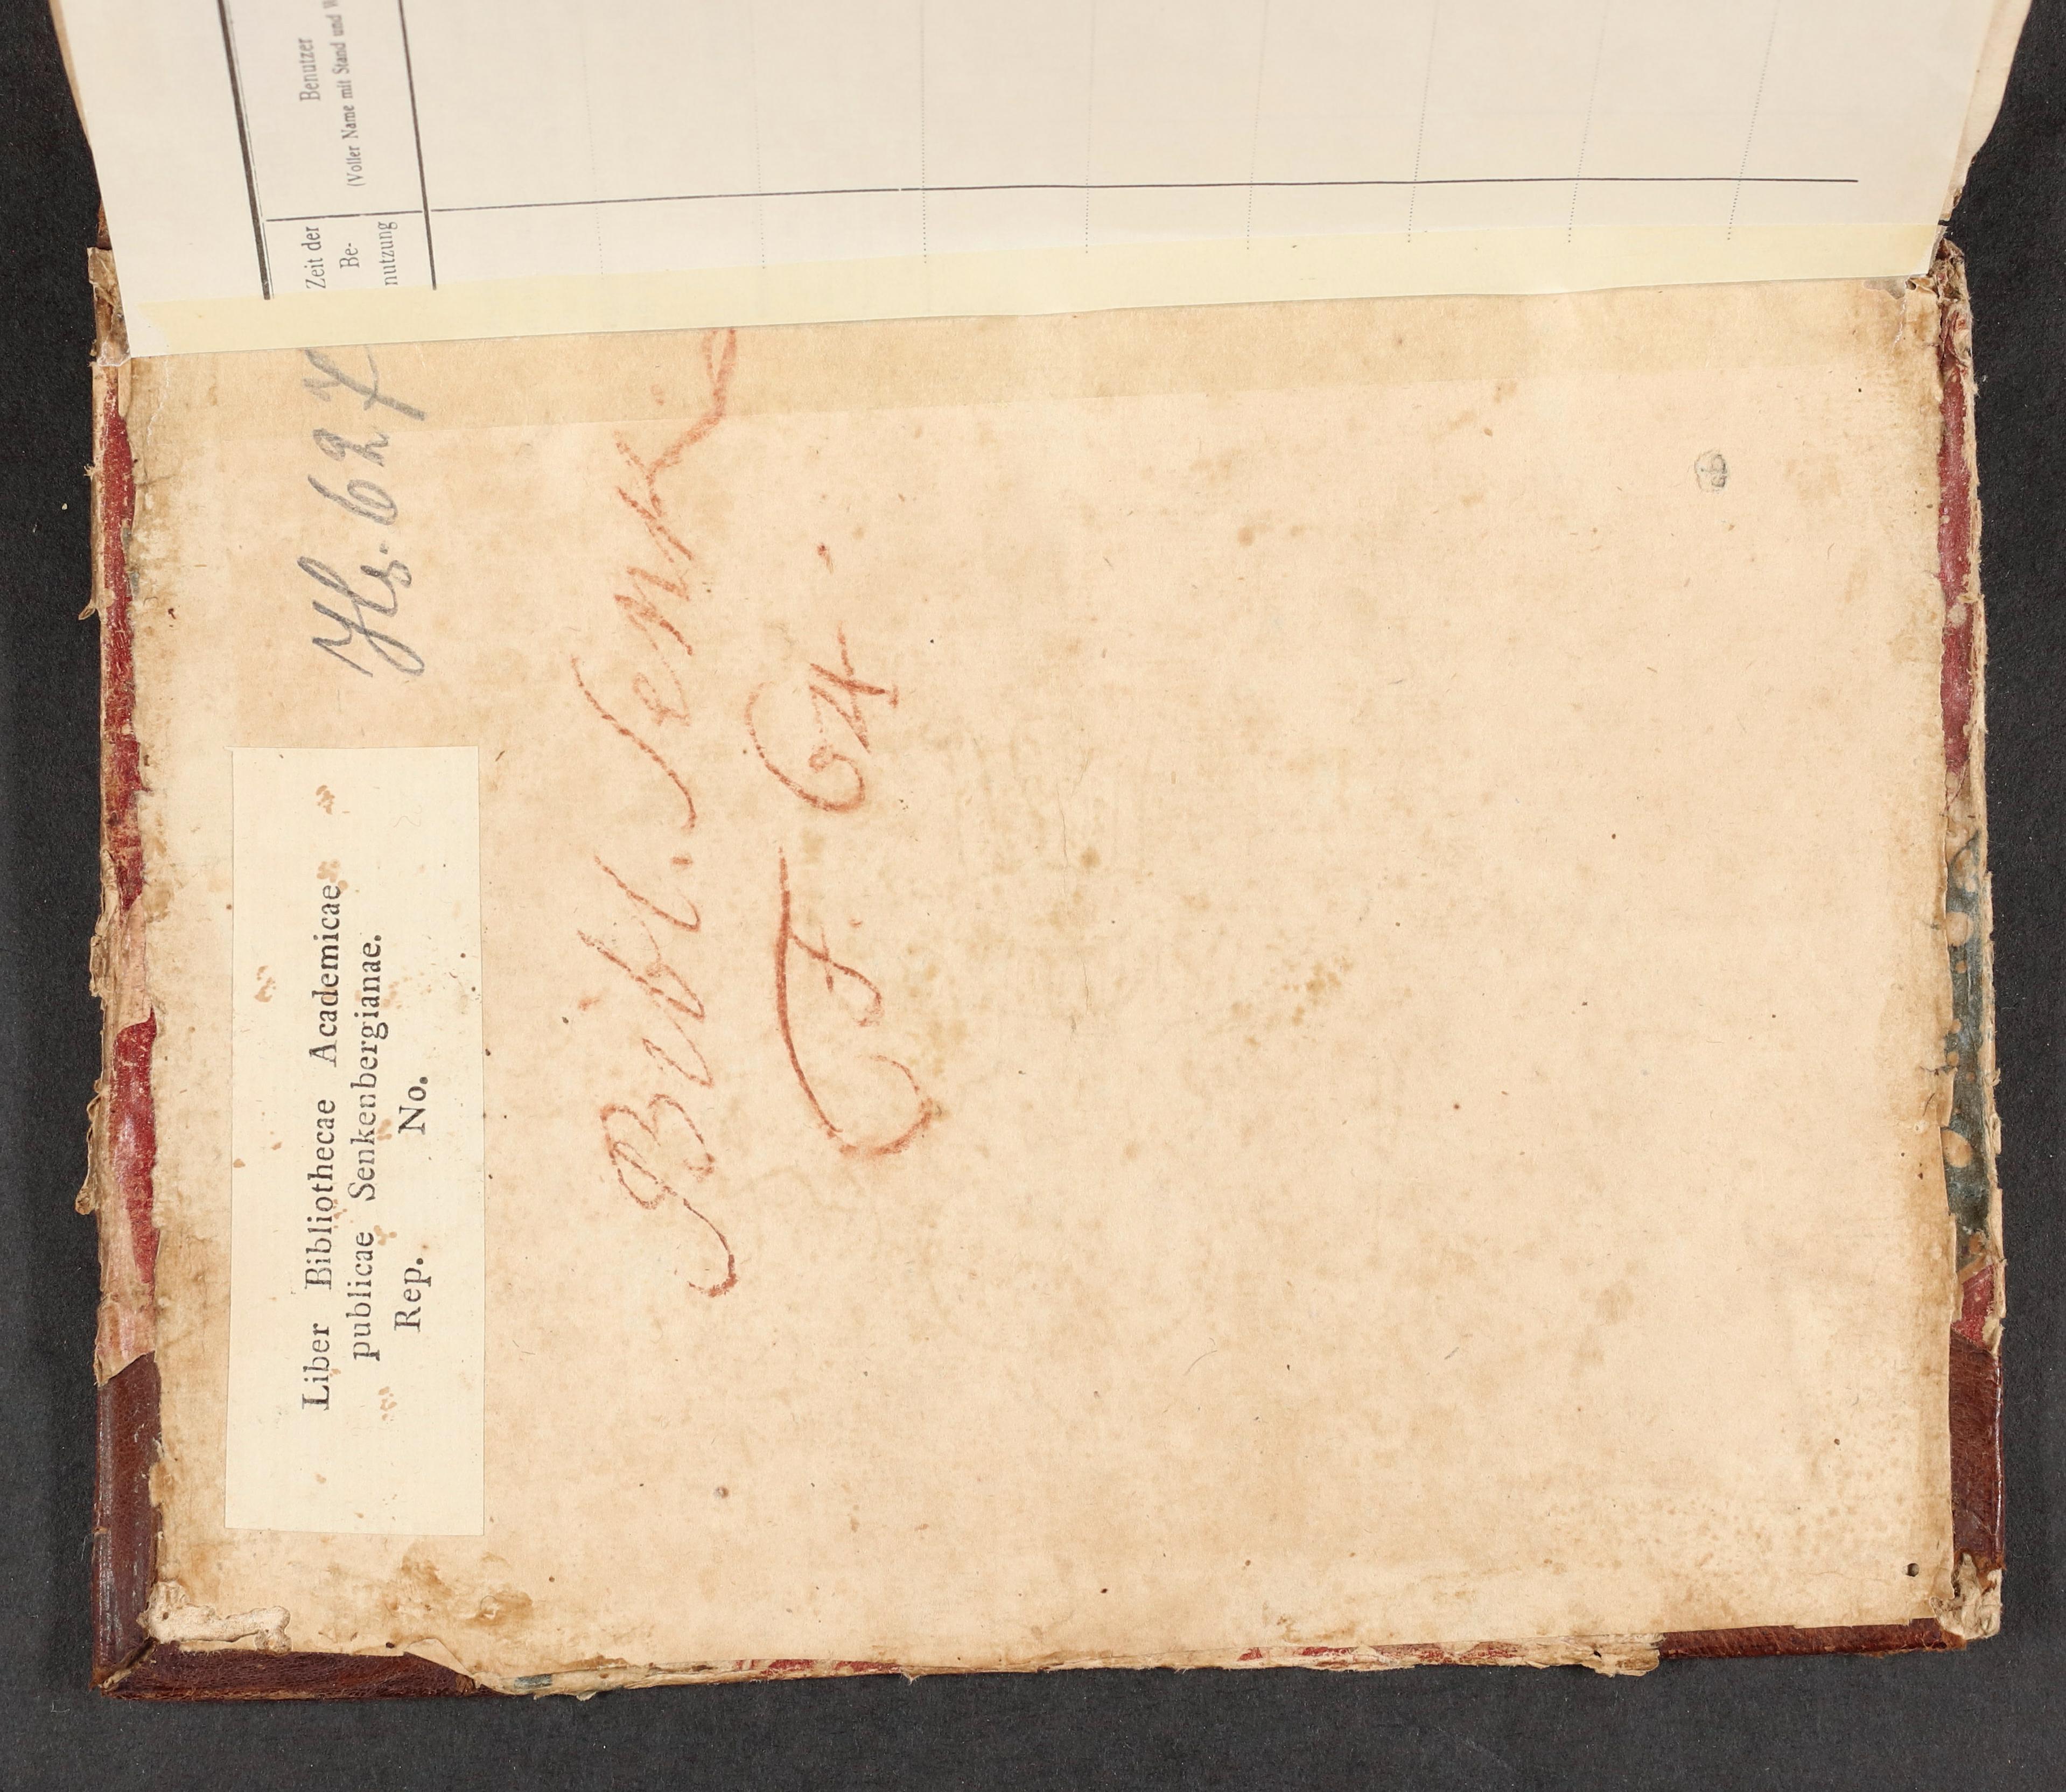 Zeit der
Be-
nutzung
Benutzer
(Voller Name mit Stand und W
Hs. 627
Liber Bibliothecae Academicae
publicae Senkenbergianae.
Rep. No.
Bibl. Senk
F. 64.